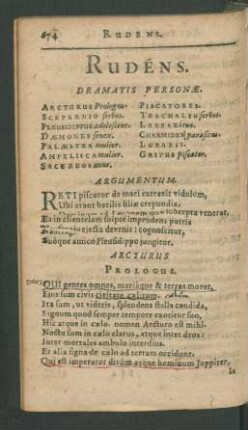 674 RUDENS.
RUDENS.
DRAMATIS PERSONÆ.
ARCTURUS Prologus.
SCEPARNIO servos.
PLEUSIDIPPUS adolescens.
DÆMONES senex.
PALÆSTRA mulier.
AMPELISCA mulier.
SACERDOS anus.
PISCATORES.
TRACHALIO servos.
LABRAX
CHARMIDES parasitus.
LORARII.
GRIPUS piscator.
ARGUMENTUM.
RETI piscator de mari extraxit vidulum,
Ubi erant herilis filiæ crepundia,
subrepta venerat.
Ea in clientelam suipte imprudens patris
ejecta devenit: cognoscitur,
Suoque amico Pleusidippo jungitur.
ARCTURUS
PROLOGUS.
QUI gentes omnes, mariaque & terras movet,
Ejus sum civis civitate cælitum.
Ita sum, ut videtis, splendens stella candida,
Signum quod semper tempore exoritur suo,
Hic atque in cælo. nomen Arcturo est mihi.
Noctu sum in cælo clarus, atque inter deos:
Inter mortales ambulo interdius.
Et alia signa de cælo ad terram occidunt.
Qui est imperator divûm atque hominum Juppiter,
Is